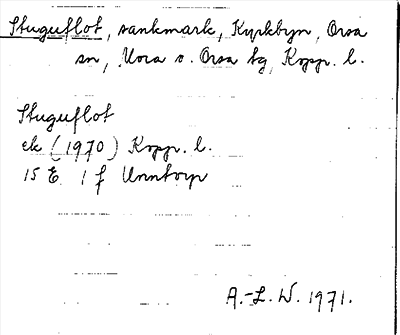 Stuguflot, sankmark, Kyrkbyn, Orsa
sn, Mora o. Orsa tg, Kopp. l.
Stuguflot
ek (1970) Kopp. l.
15 E 1 f Unntorp
A.-L. W. 1971.